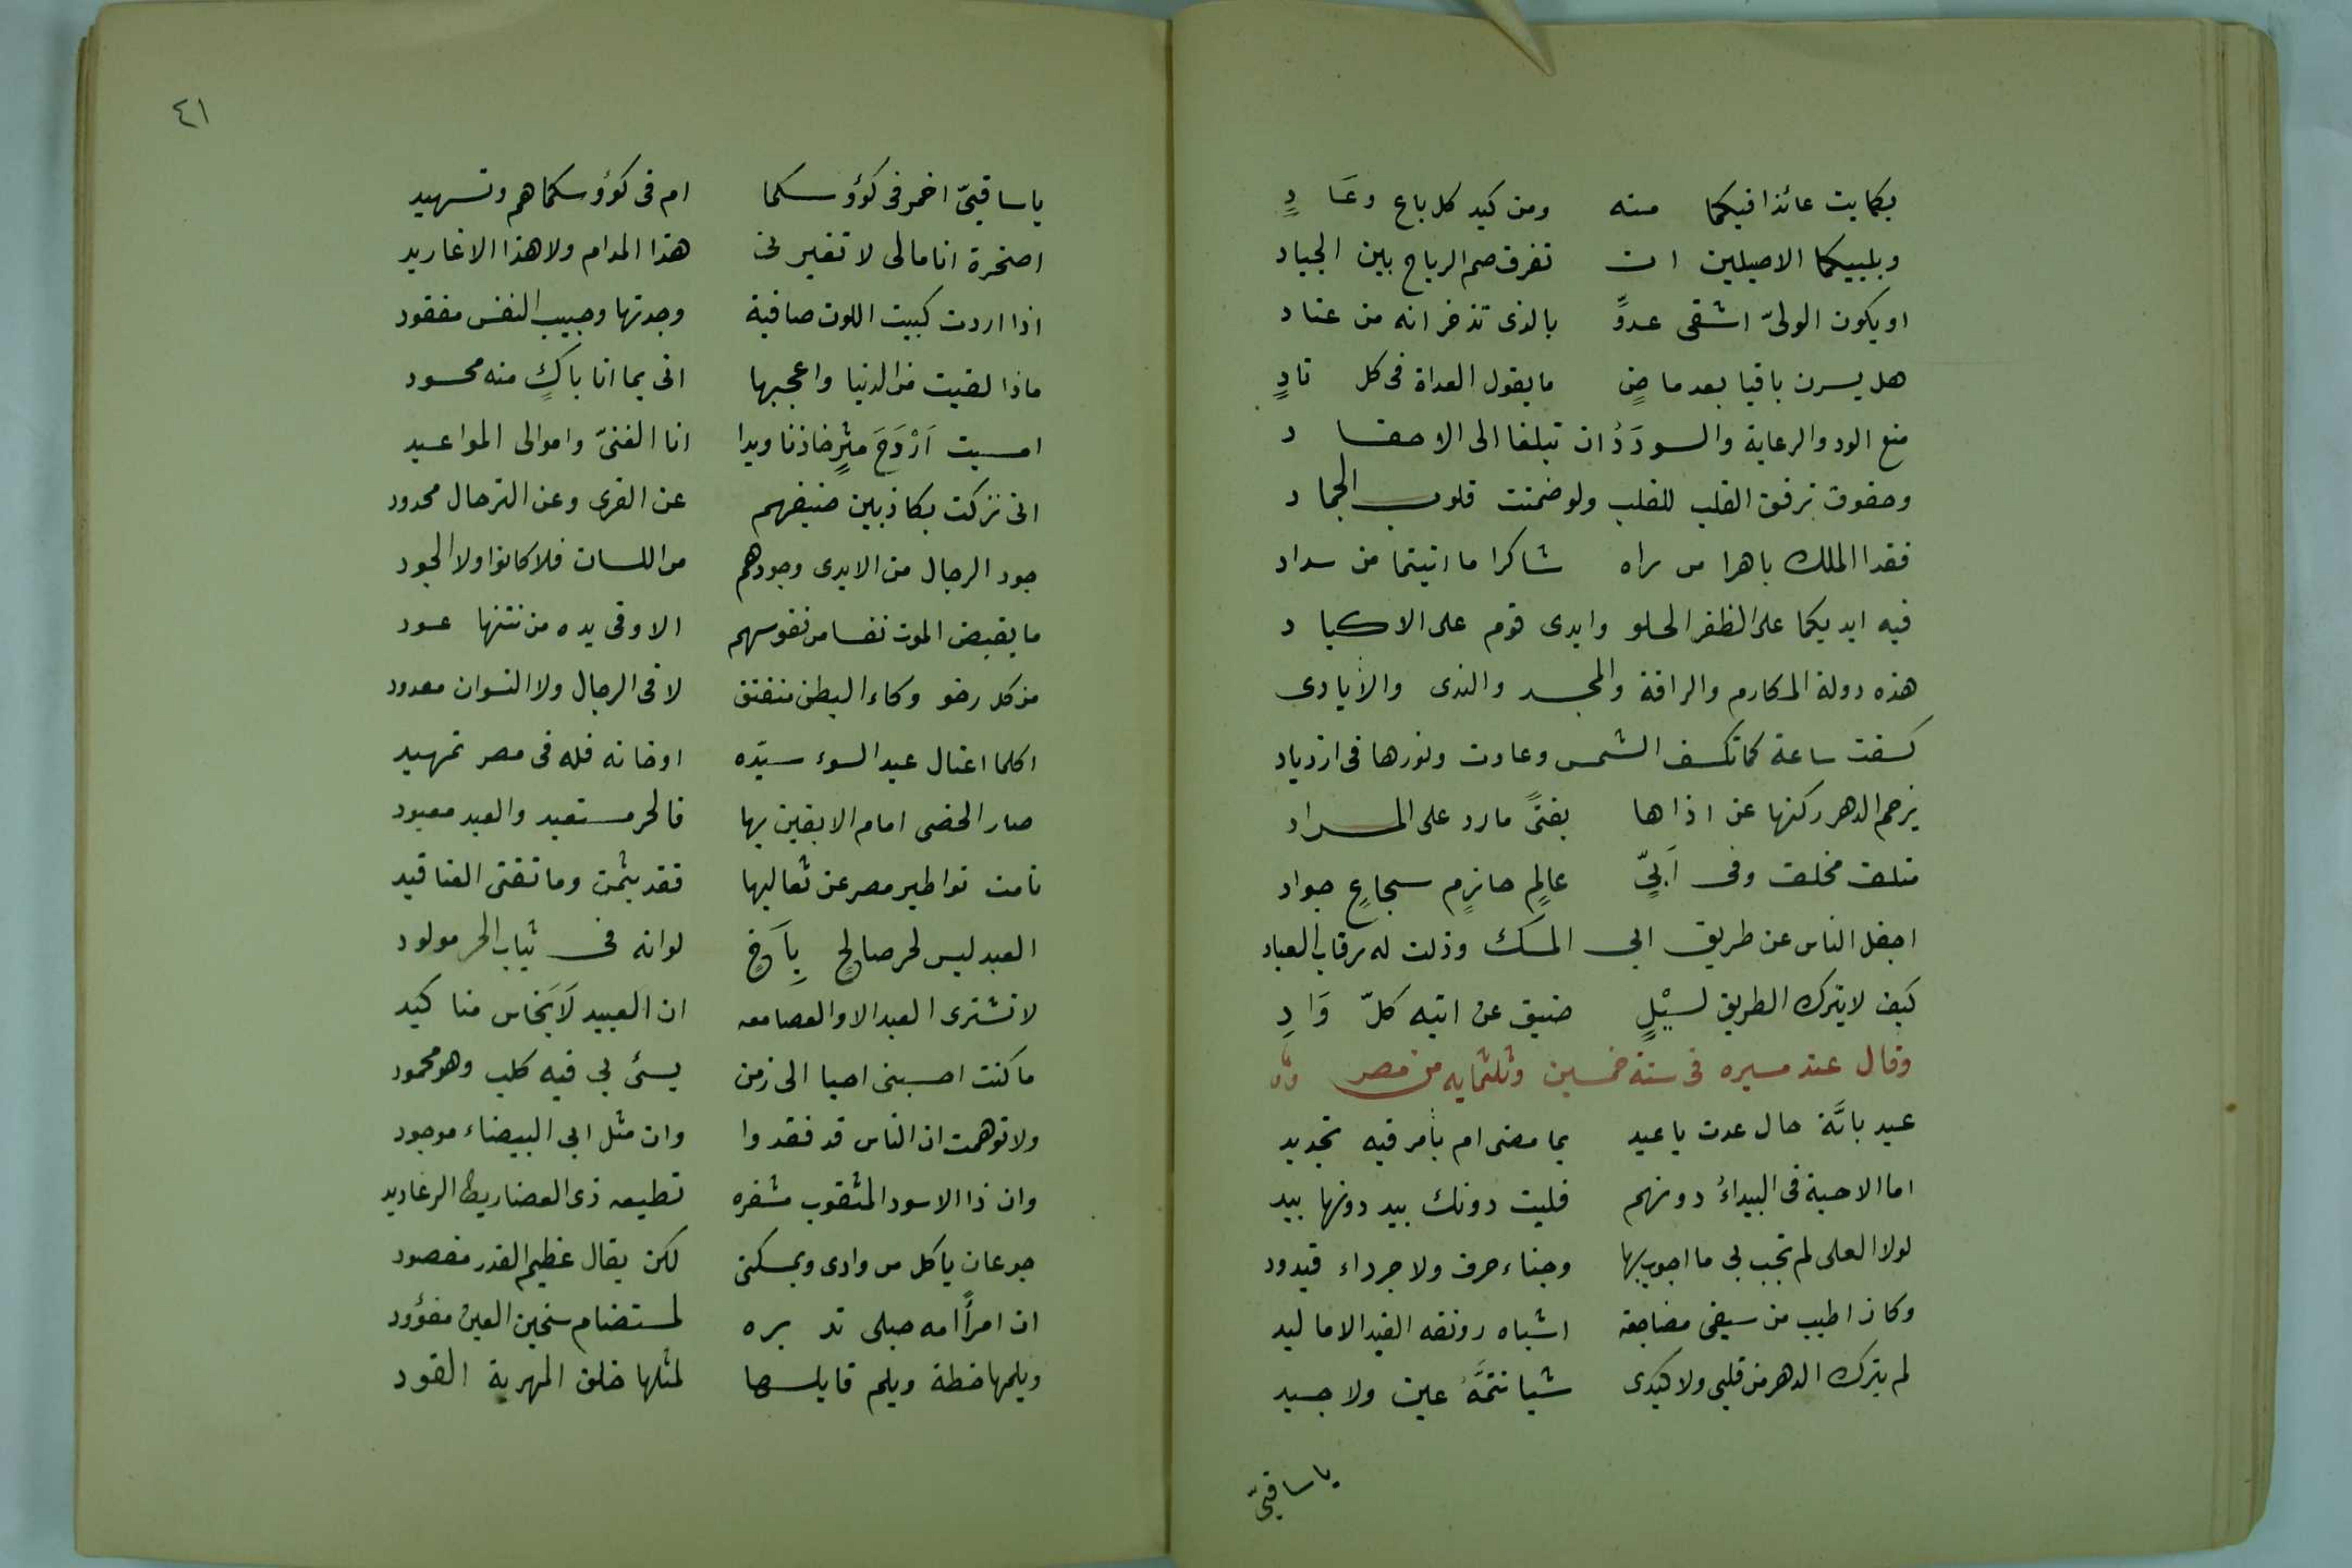 بكما بت عائذا فيكما منه ومن كيد كل باغ وعَادٍ
وبلبيكما الاصيلين ان تفرق صم الرياح بين الجياد
او يكون الولىّ اشقى عدوٍّ بالذى تذخرانه من عتاد
هل يسرن باقيا بعد ماضٍ ما يقول العداة فى كل نادٍ
منع الود والرعاية والسودَدُ ان تبلغا الى الاحقاد
وحقوق ترقق القلب للقلب ولو ضمنت قلوب الجماد
فغدا الملك باهرا من راه شاكرا ما اتيتما من سداد
فيه ايديكما على الظفر الحلو وايدى قوم على الاكباد
هذه دولة المكارم والرافة والمجد والندى والأيادى
كسفت ساعة كما تكسف الشمس وعادت ونورها فى ازدياد
يزحم الدهر ركنها عن اذاها بفتىً مارد على المراد
متلف مخلف وفى اَبىٍّ عالمٍ حازمٍ سجاعٍ جواد
اجفل الناس عن طريق ابى المسك وذلت له رقاب العباد
كيف لا يترك الطريق لسَيْلٍ ضيق عن اتيه كلّ وَادِ
وقال عند مسيره فى سنة خمسين وثلثمايه من مصر
عيد بايَّة حال عدت يا عيد بما مضى ام بأمر فيه تجديد
اما الاحبة فى البيداءُ دونهم فليت دونك بيد دونها بيد
لولا العلى لم تجب بى ما اجوب بها وجناء حرف ولا جرداء قيدود
وكان اطيب من سيفى مضاجعة اشباه رونقه الغيد الاماليد
لم يترك الدهر من قلبى ولا كبدى شيا تتمَّهُ عين ولا جيد
يا ساقيىّ
٤١
يا ساقيىّ اخمر فى كؤوسكما ام فى كؤوسكما هم وتسهيد
اصخرة انا مالى لا تغيرنى هذا المدام ولا هذا الاغاريد
اذا اردت كميت اللون صافية وجدتها وحبيب النفس مفقود
ماذا لقيت من الدنيا واعجبها انى بما انا باكٍ منه محسود
امسيت اَرْوَحَ مثرٍ خازنا ويدا انا الغنىّ واموالى المواعيد
انى نزكت بكاذبين ضيفهم عن القرى وعن الترحال محدود
جود الرجال من الايدى وجودهم من اللسان فلا كانوا ولا الجود
ما يقبض الموت نفسا من نفوسهم الا وفى يده من نتنها عود
من كل رخو وكاء البطن منفتق لا فى الرجال ولا النسوان معدود
اكلما اغتال عبد السوء سيّده او خانه فله فى مصر تمهيد
صار الخصى امام الابقين بها فالحر مستعبد والعبد معبود
نامت نواطير مصر عن ثعاليها فقد بشمن وما تفنى العناقيد
العبد ليس لحر صالحٍ بِاَخٍ لو انه فى ثياب الحر مولود
لا تشترى العبد الا والعصا معه ان العبيد لَاَنجاس مناكيد
ما كنت احسبنى احيا الى زمن يسئ بى فيه كلب وهو محمود
ولا توهمت ان الناس قد فقدوا وان مثل ابى البيضاء موجود
وان ذا الاسود المثقوب مشفره تطيعه ذى العضاريط الرعاديد
جوعان ياكل من زادى ويمسكنى لكن يقال عظيم القدر مقصود
ان امرأً امه حبلى تدبره لمستضام سخين العين مفؤود
ويلمها خطة ويلم قابلها لمثلها خلق المهرية القود